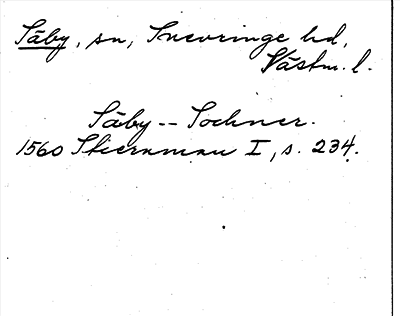 Säby, sn, Snevringe hd,
Västm. l.
Säby -- Sochner.
1560 Stiernman I, s. 234.